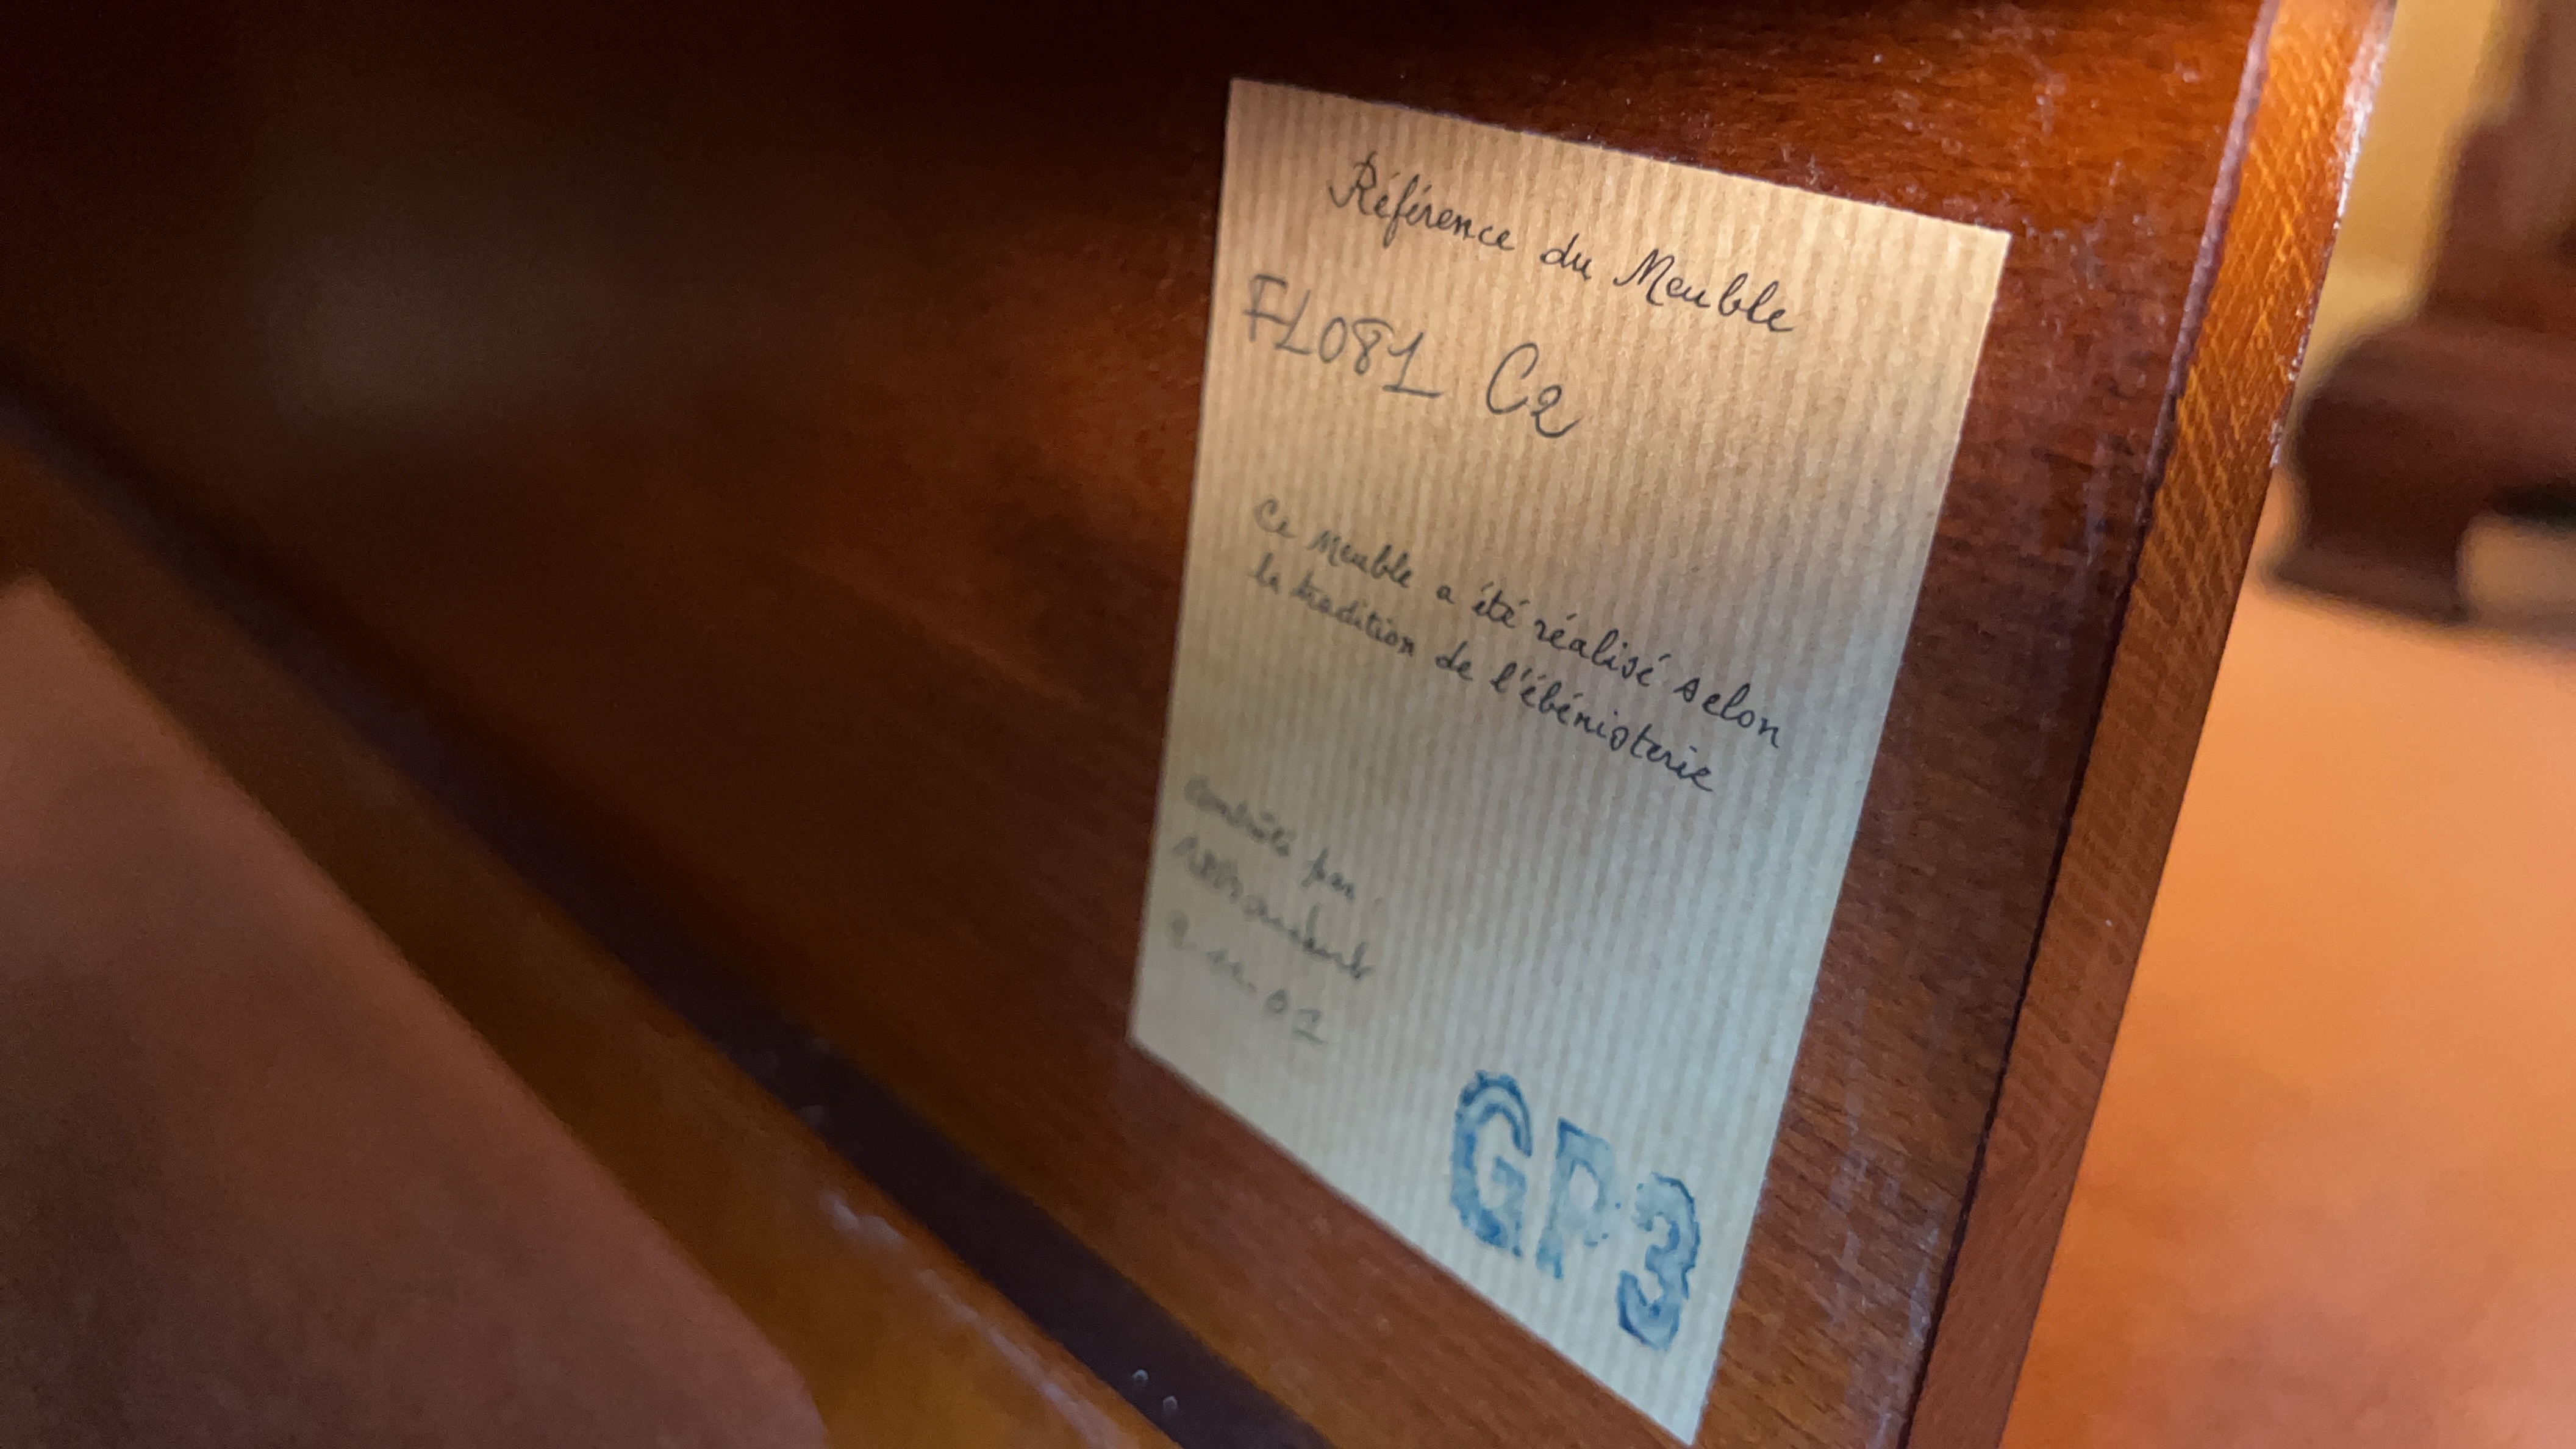 Référence du Meuble
FL081 C2
Ce Meuble a été réalisé selon
la tradition de l'ébénisterie
Contrôlé par :
GP3